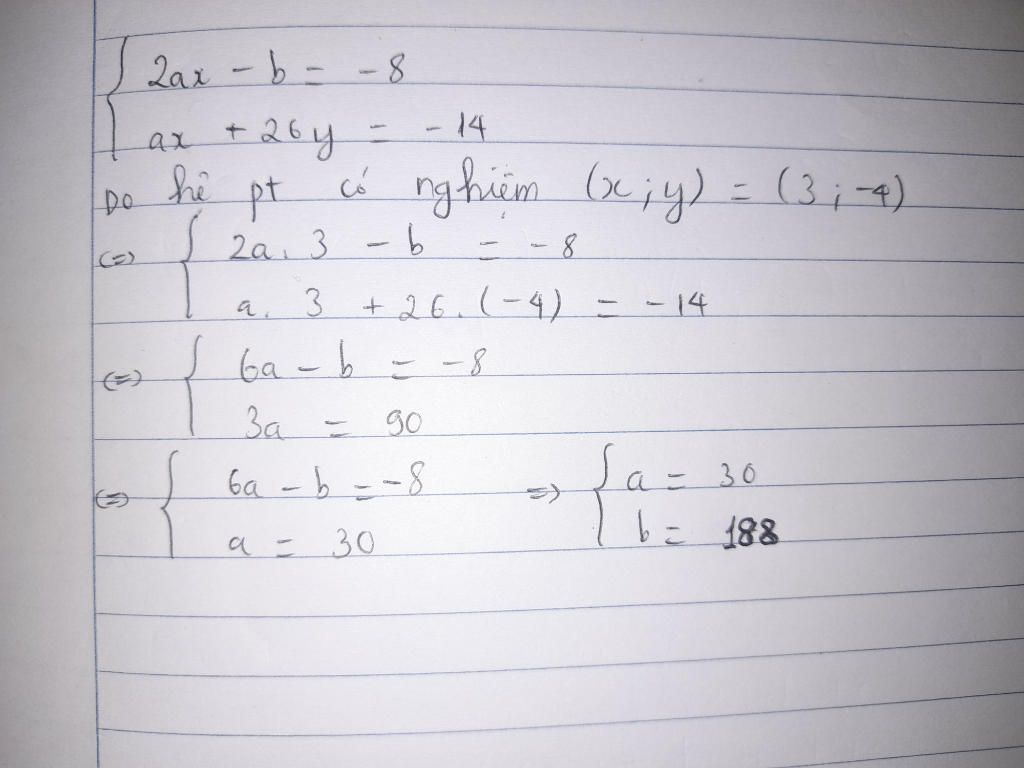 { 2ax - b = -8
ax + 26y = -14
Do hệ pt có nghiệm (x; y) = (3; -4)
<=> { 2a. 3 - b = -8
a. 3 + 26. (-4) = -14
<=> { 6a - b = -8
3a = 90
<=> { 6a - b = -8 => { a = 30
a = 30 b = 188